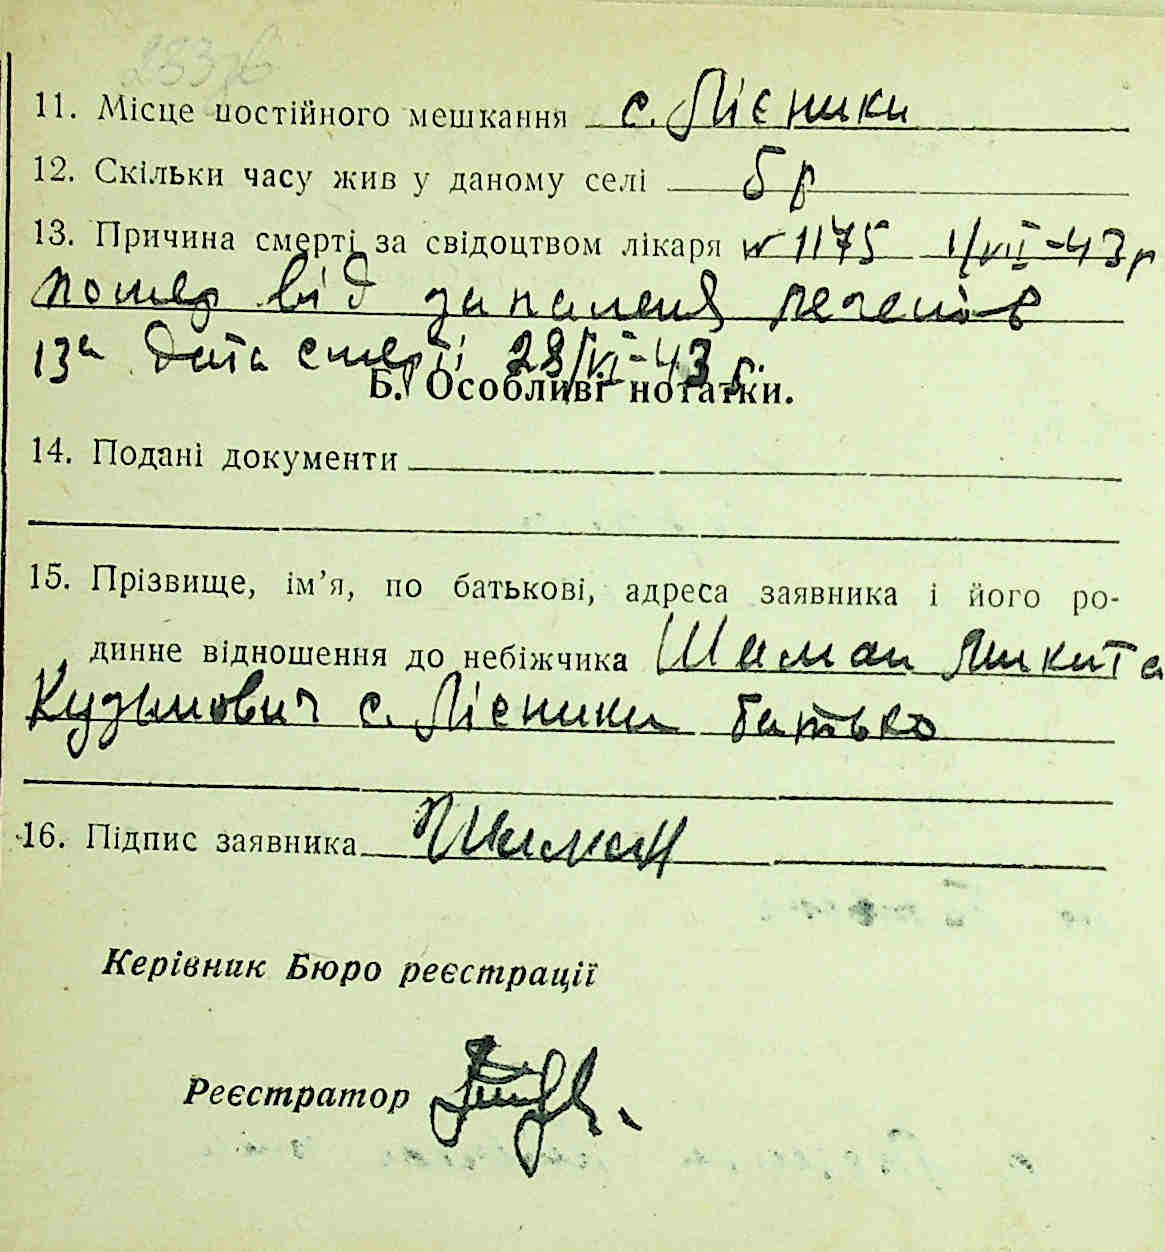 11. Місце постійного мешкання с. Лієники
12. Скільки часу жив у даному селі 5 р
13. Причина смерті за свідоцтвом лікаря № 1175 1/VII-43 р
помер від запаленя легенів
13а Дата смерті 28/VI-43 р.
Б. Особливі нотатки.
14. Подані документи
15. Прізвище, ім’я, по батькові, адреса заявника і його ро-
динне відношення до небіжчика Шиман Микита
Кузьмович с. Лієники батько
16. Підпис заявника Шиман
Керівник Бюро реєстрації
Реєстратор